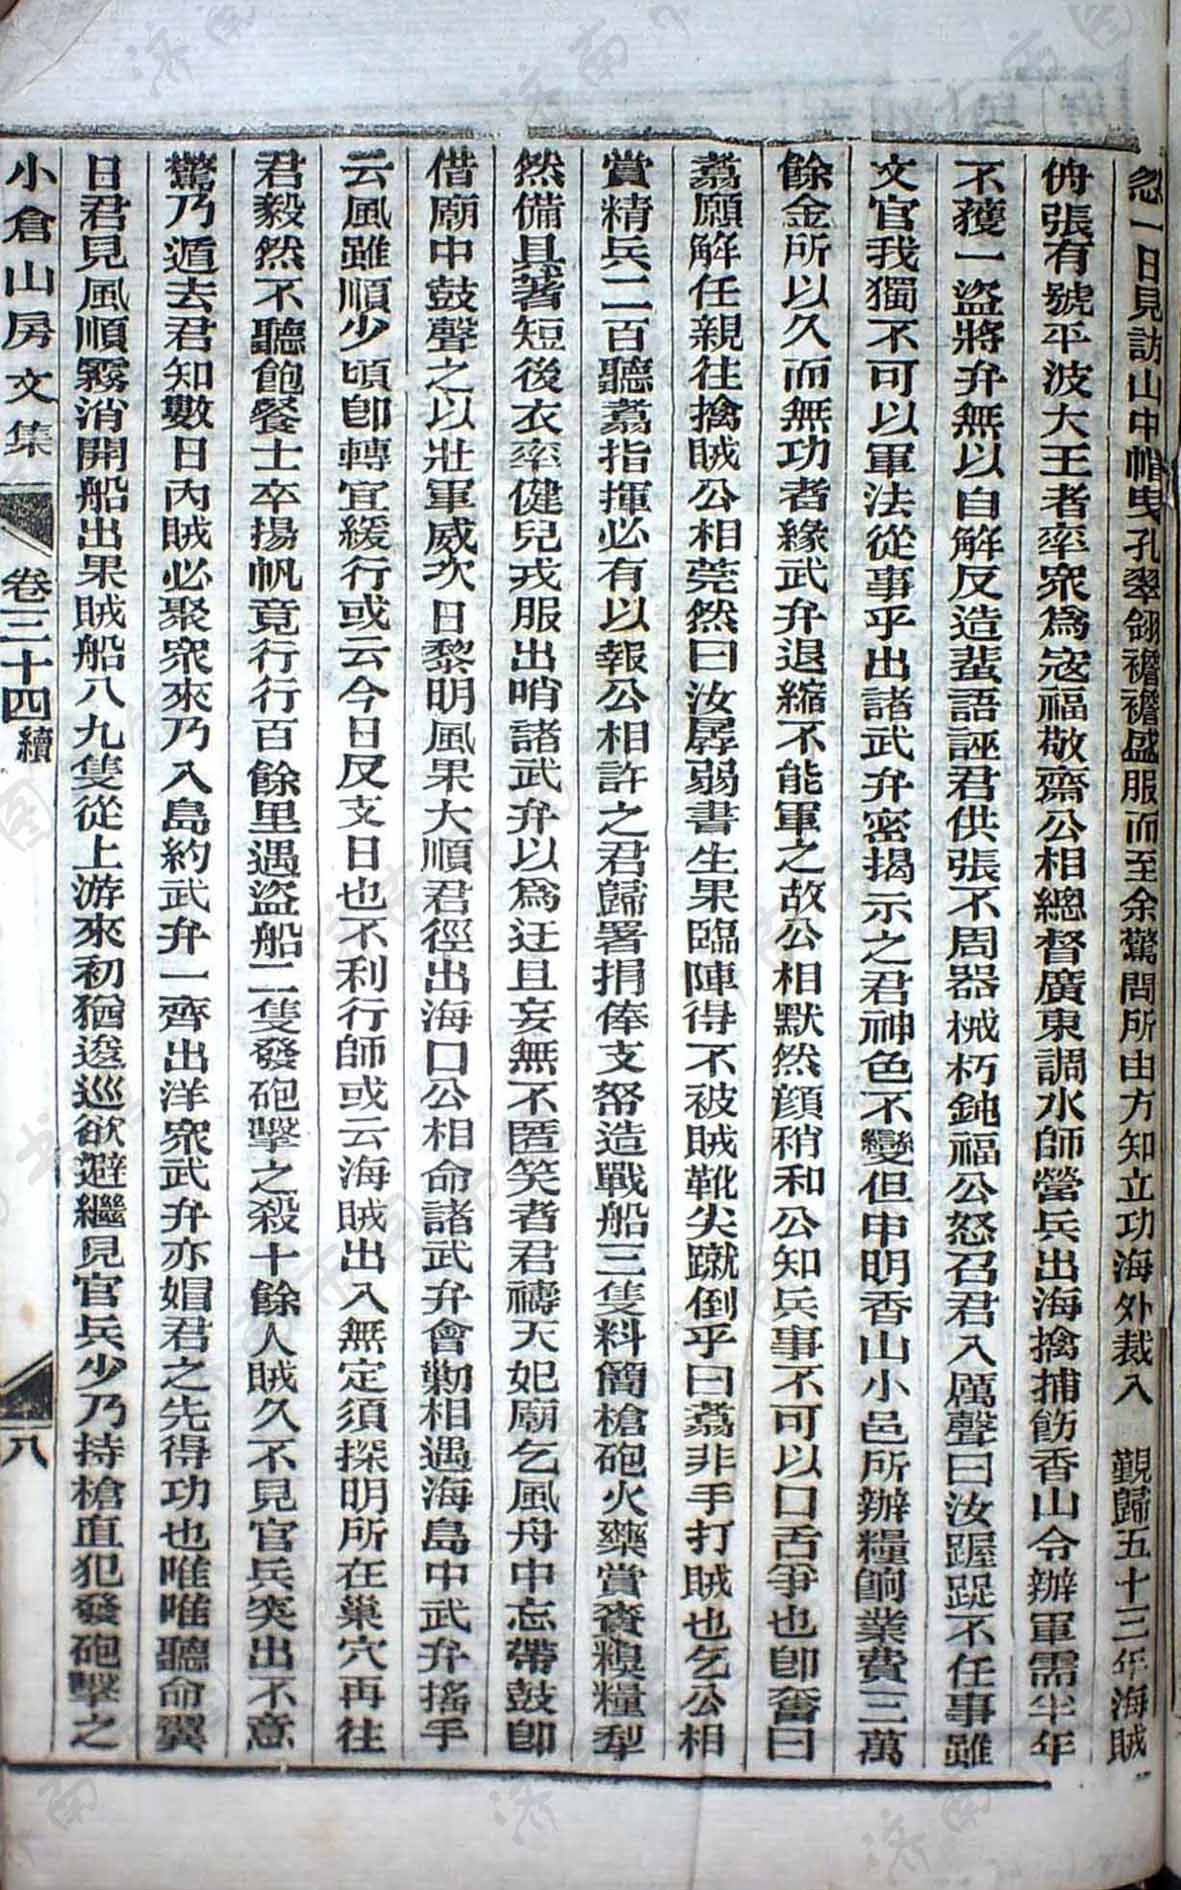 忽一日見訪山中帽曳孔翠翎襜襜盛服而至余驚問所由方知立功海外裁入　覲歸五十三年海賊
侜張有號平波大王者率衆爲寇福敬齋公相總督廣東調水師營兵出海擒捕飭香山令辦軍需半年
不獲一盜將弁無以自解反造蜚語誣君供張不周器械朽鈍福公怒召君入厲聲曰汝踞踀不任事雖
文官我獨不可以軍法從事乎出諸武弁密揭示之君神色不變但申明香山小邑所辦糧餉業費三萬
餘金所以久而無功者緣武弁退縮不能軍之故公相默然顔稍和公知兵事不可以口舌爭也卽奮曰
翥願解任親往擒賊公相莞然曰汝孱弱書生果臨陣得不被賊靴尖蹴倒乎曰翥非手打賊也乞公相
賞精兵二百聽翥指揮必有以報公相許之君歸署捐俸支帑造戰船三隻料簡槍砲火藥賞賚糗糧犁
然備具著短後衣率健兒戎服出哨諸武弁以爲迂且妄無不匿笑者君禱天妃廟乞風舟中忘帶鼓卽
借廟中鼓聲之以壯軍威次日黎明風果大順君徑出海口公相命諸武弁會勦相遇海島中武弁搖手
云風雖順少頃卽轉宜緩行或云今日反支日也不利行師或云海賊出入無定須探明所在巢穴再往
君毅然不聽飽餐士卒揚帆竟行行百餘里遇盜船二隻發砲擊之殺十餘人賊久不見官兵突出不意
驚乃遁去君知數日內賊必聚衆來乃入島約武弁一齊出洋衆武弁亦媢君之先得功也唯唯聽命翼
日君見風順霧消開船出果賊船八九隻從上游來初猶逡巡欲避繼見官兵少乃持槍直犯發砲擊之
小倉山房文集　卷三十四續　八